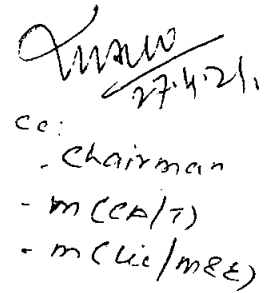 27.4.21.
cc:
- Chairman
- m (CA/T)
- m (Lic/M&E)